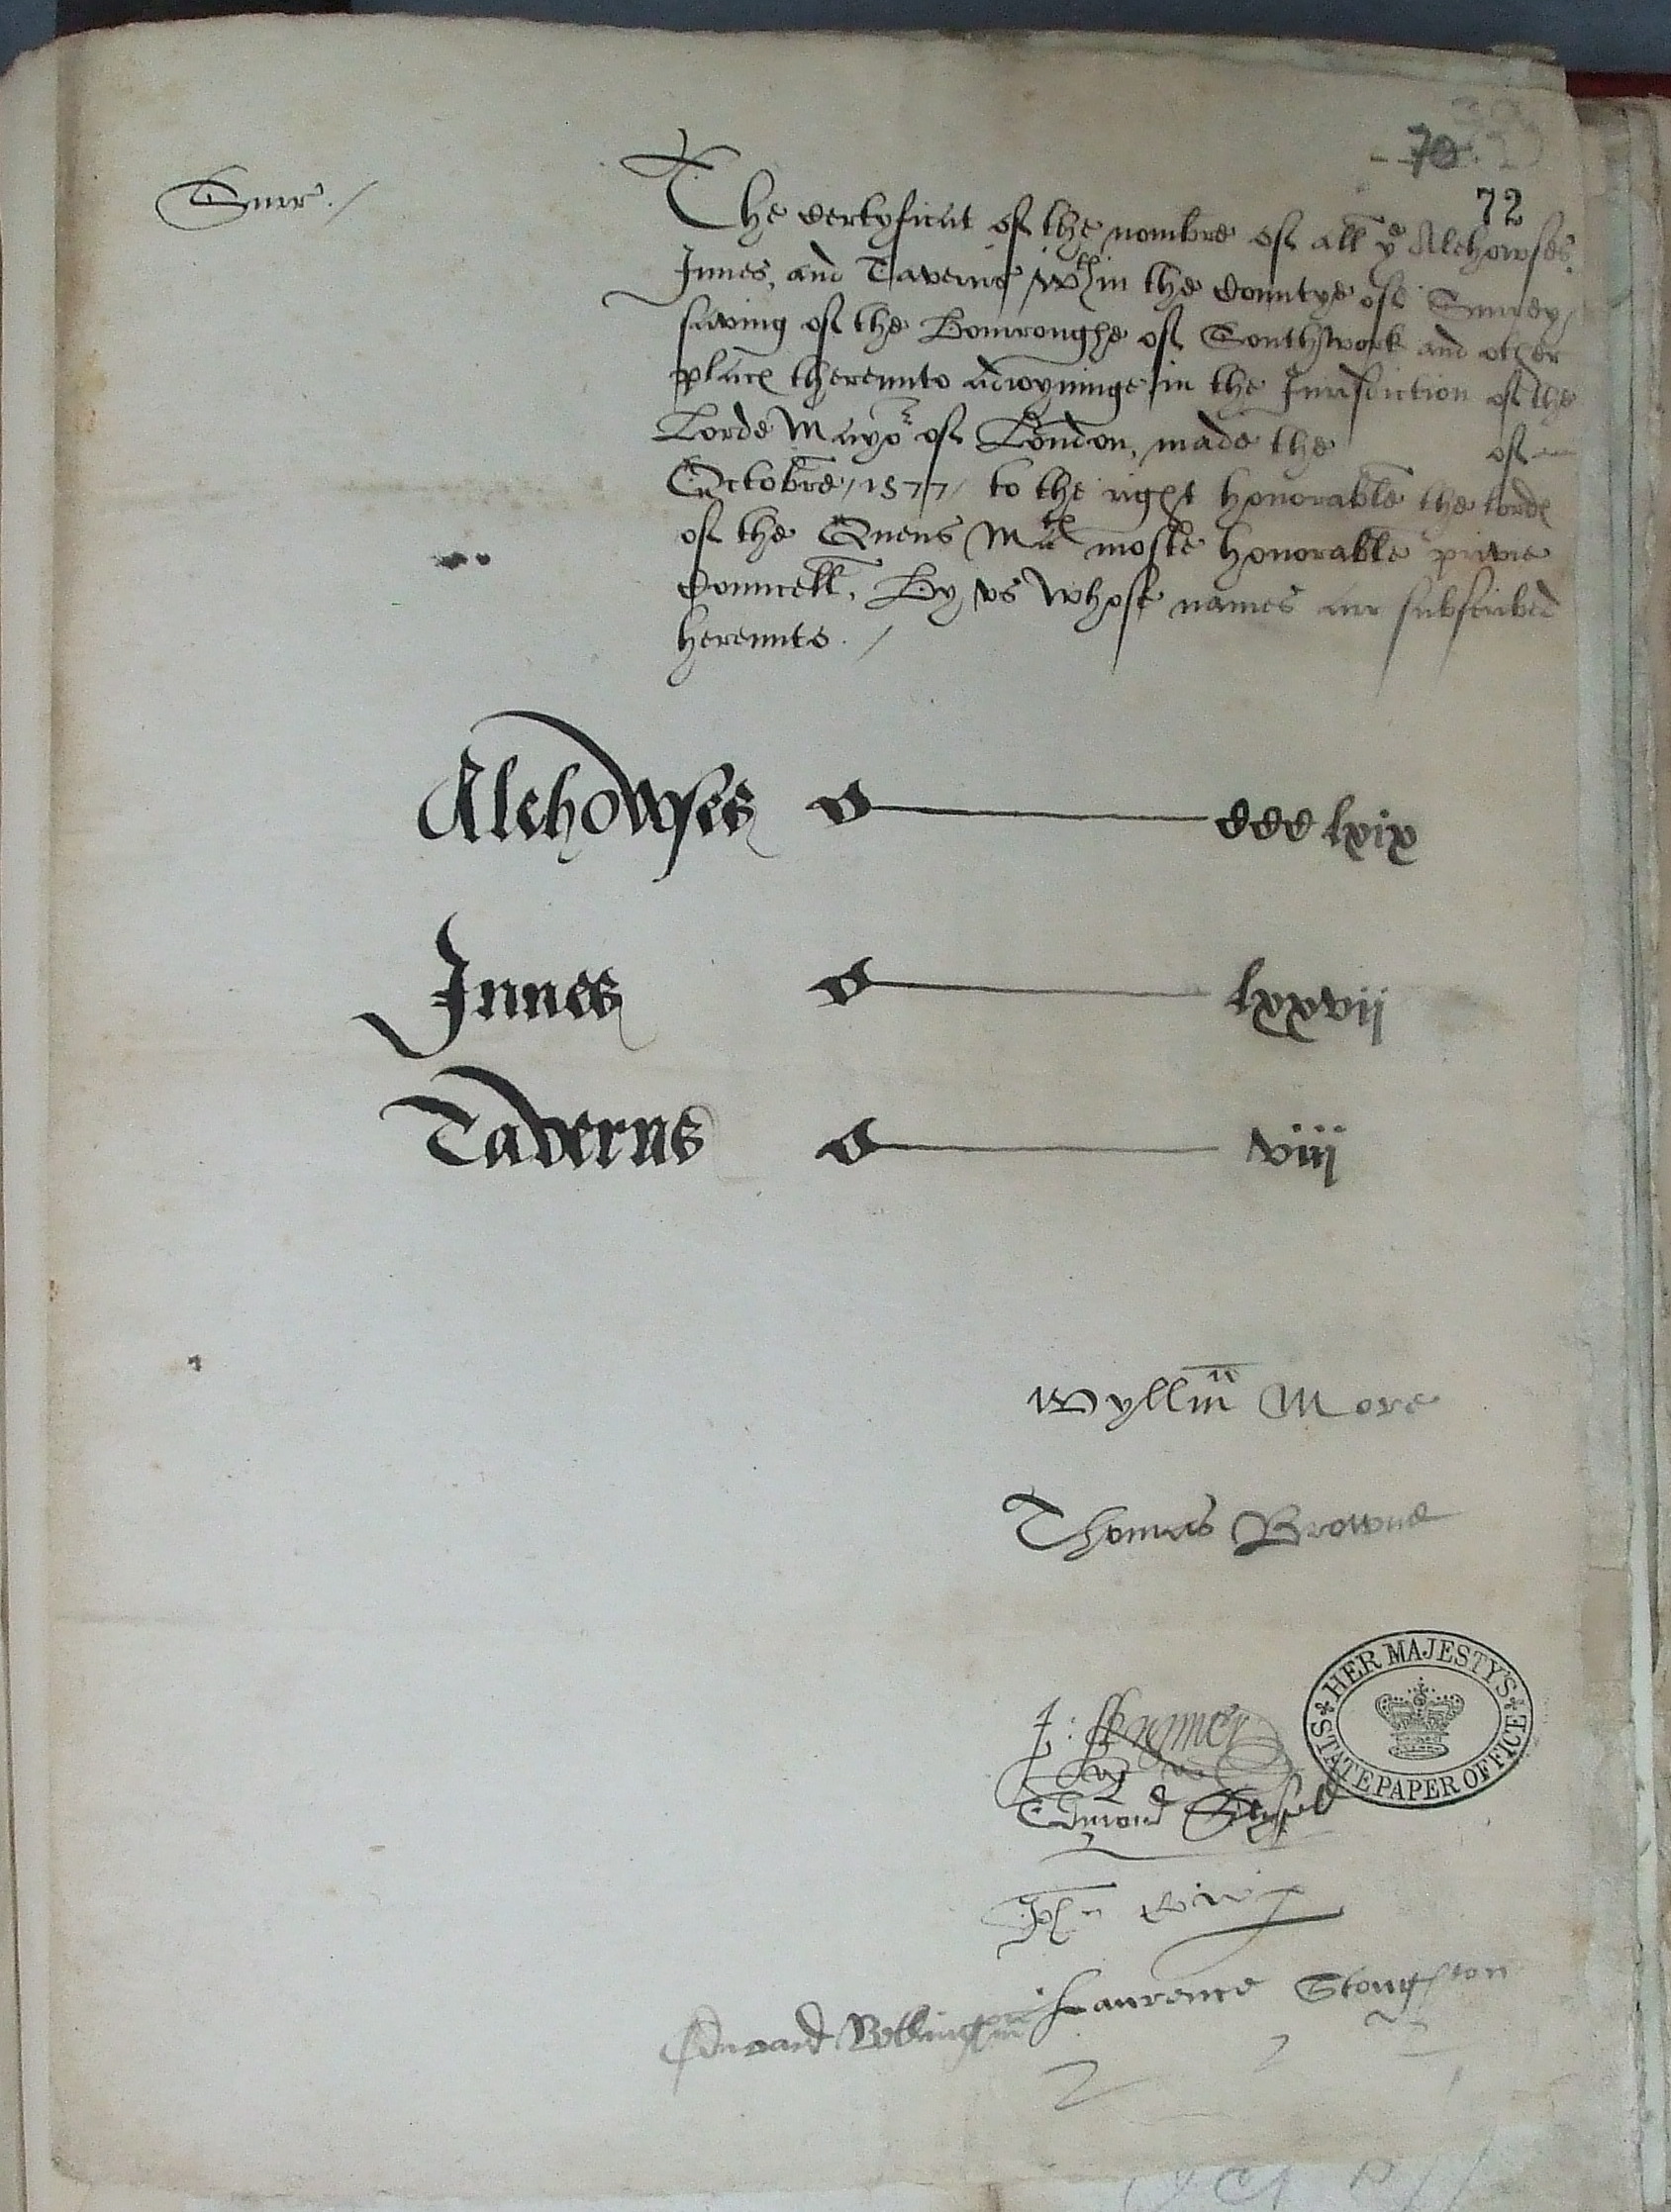 70
72
Surr. /
The certyficat of the nombre of all yͤ Alehowses,
Innes, and Taverns wᵗʰin the Countye of Surrey,
saving of the Bourroughe of Southwork and other
placꝭ thereunto adioyninge in the Jurisdiction of the
Lorde Mayoʳ of London, made the of
Octobre / 1577 / to the right honorable the lordꝭ
of the Quens Maᵗⁱᵉˢ moste honorable privie
Councell. By vs whose names are subscribed
hereunto. /
Alehowses ccclxix
Innes lxxvij
Taverns viij
Wyllm More
Thomas Browne
HER MAJESTY'S STATE PAPER OFFICE
Edmond
Laurence Stoughton
Edward Bellingham